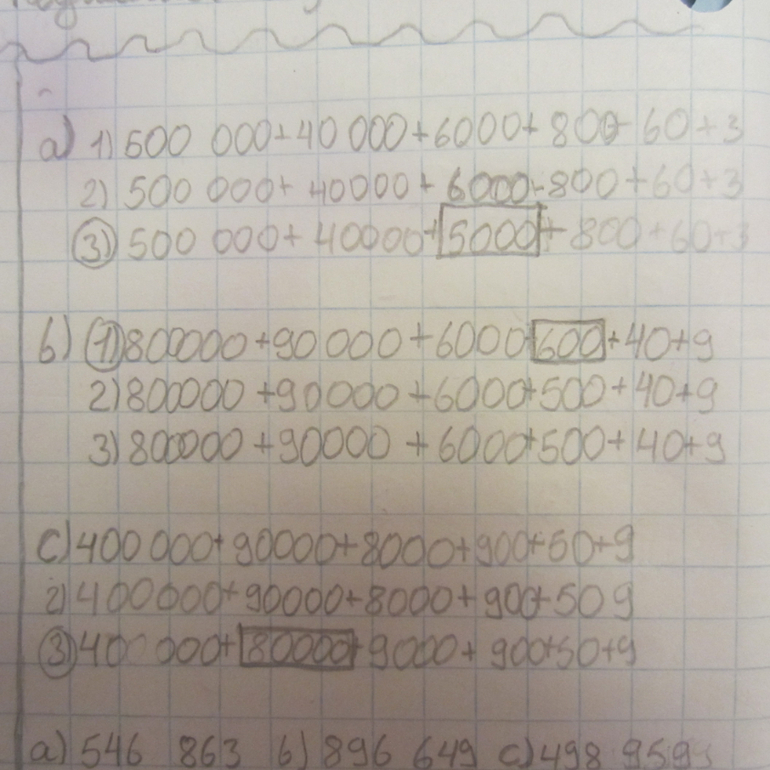 a) 1) 500 000+40 000+6000+800+60+3
2) 500 000+40000+6000+800+60+3
3) 500 000+40000+5000+800+60+3
b) 1) 800000+90000+6000+600+40+9
2) 800000+90000+6000+500+40+9
3) 800000+90000+6000+500+40+9
c) 400 000+90000+8000+900+50+9
2) 400000+90000+8000+900+50 9
3) 400 000+80000+9000+900+50+9
a) 546 863 b) 896 649 c) 498 959